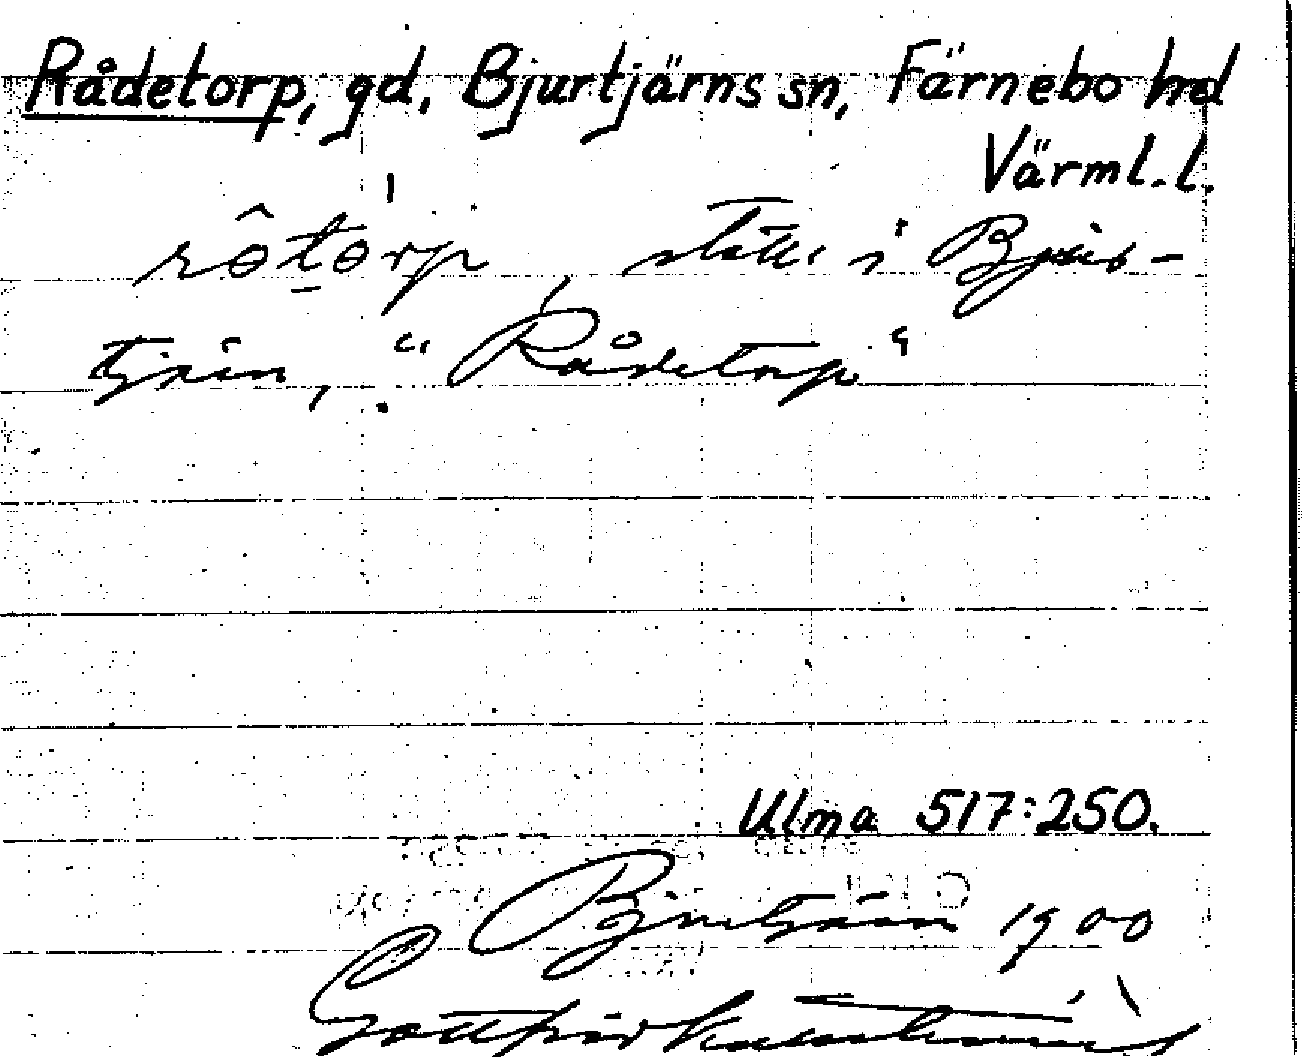 Rådetorp, gd, Bjurtjärns sn, Färnebo hd
Värml. l.
rôtorp, ställe i Bjur-
tjärn, "Rådetorp"
Ulma 517:250.
Bjurtjärn 1900
Gottfrid Kallstenius